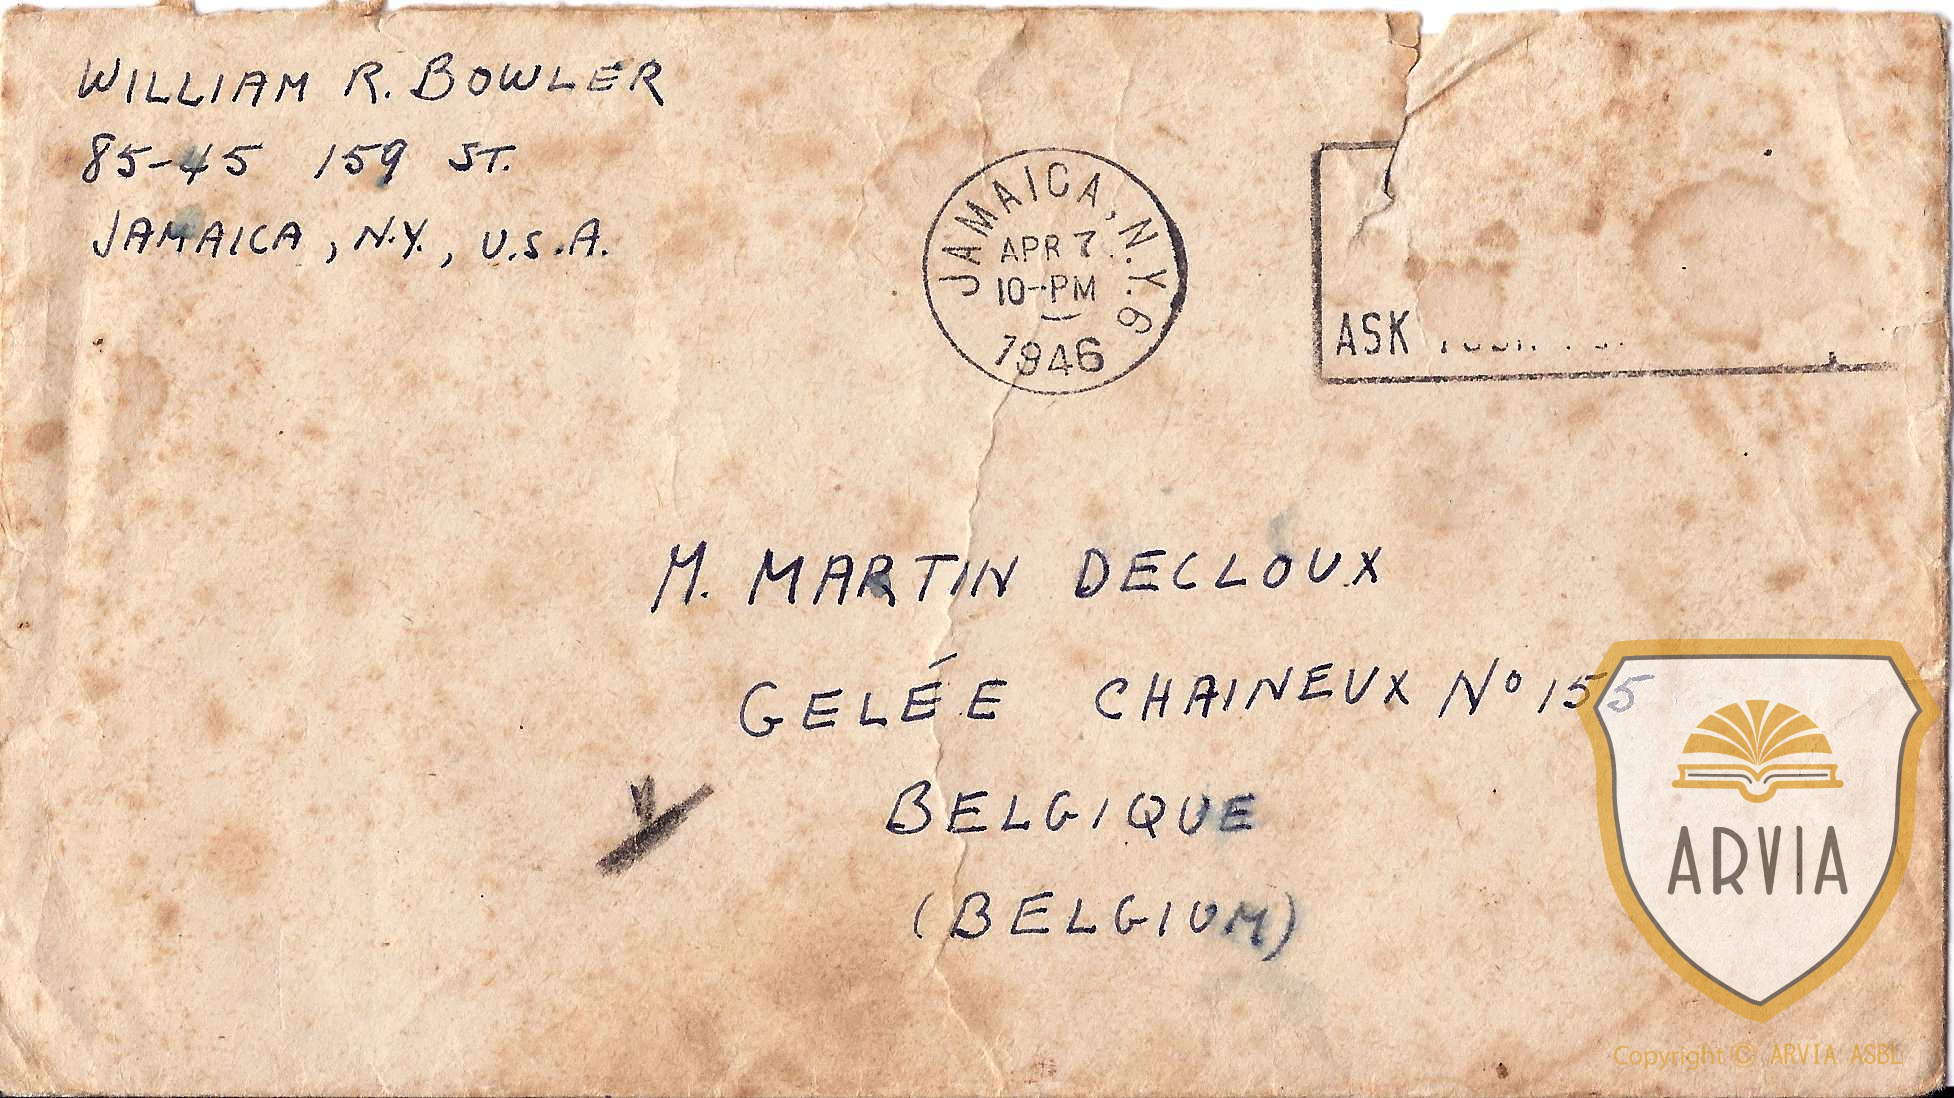 WILLIAM R. BOWLER
85-45 159 ST.
JAMAICA, N.Y., U.S.A.
JAMAICA, N.Y. 6
APR 7
10-PM
1946
ASK
M. MARTIN DECLOUX
GELÉE CHAINEUX Nº 155
BELGIQUE
(BELGIUM)
ARVIA
Copyright © ARVIA ASBL